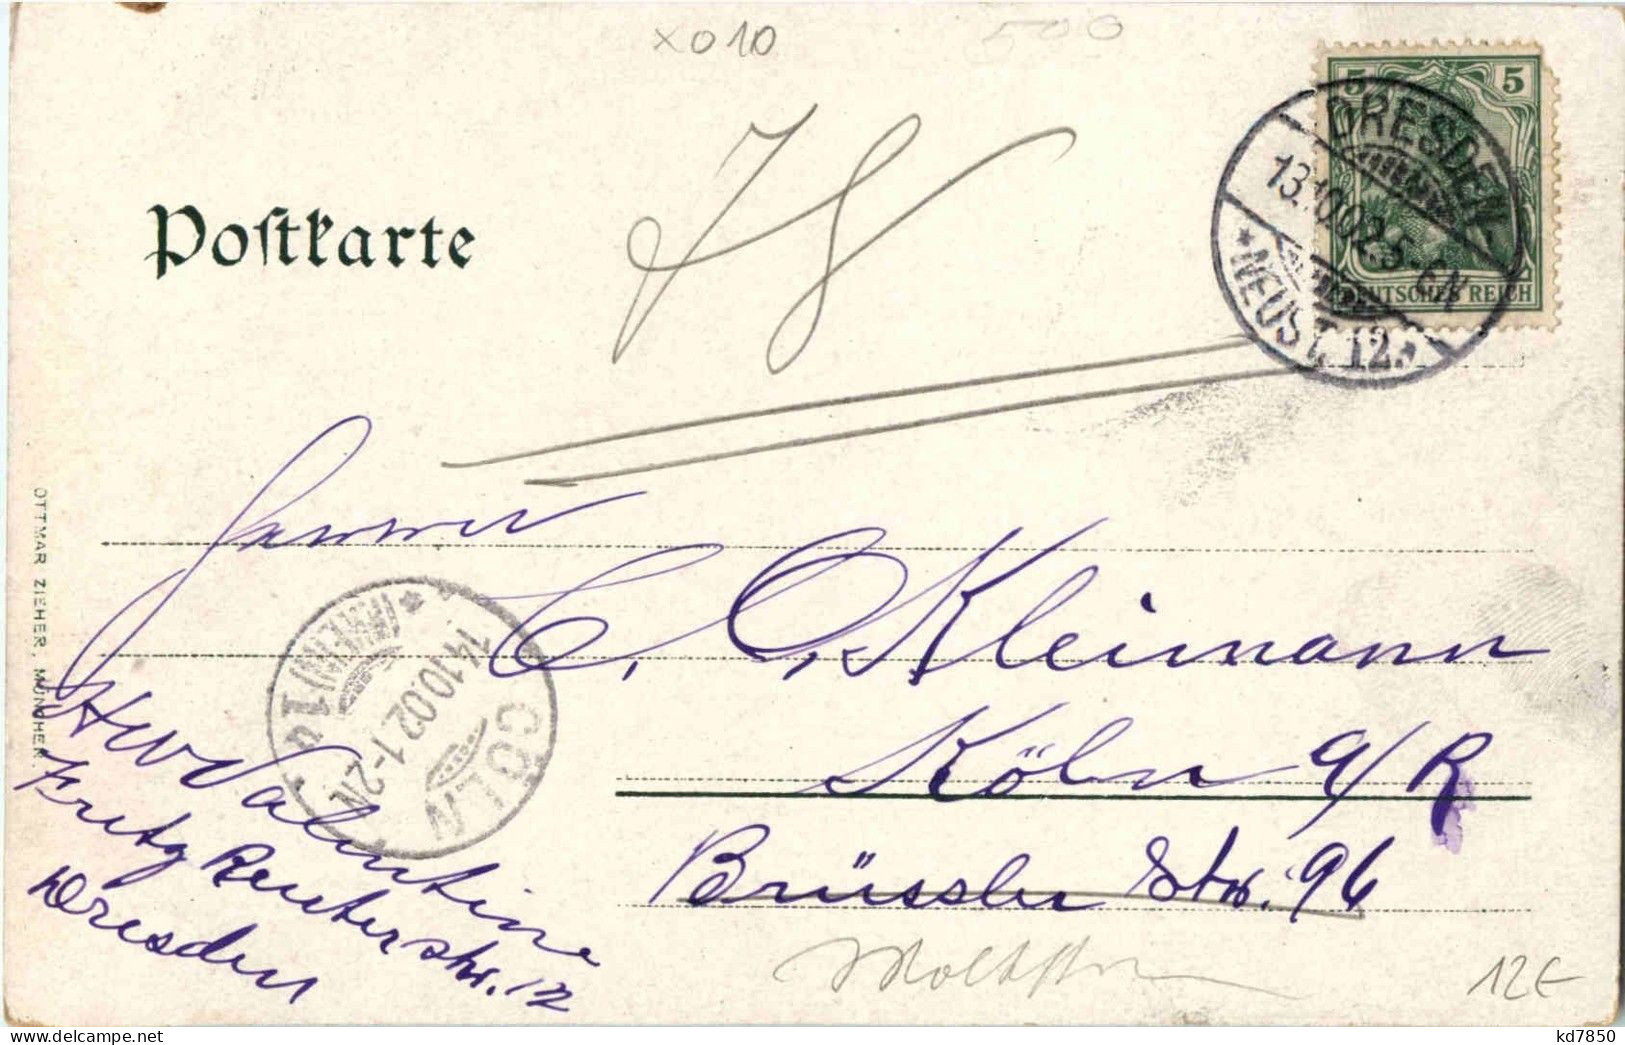 x010
500
78
Postkarte
5 5
DEUTSCHES REICH
DRESDEN-
13.10.02.5-6N
*NEUST.12.*
Herrn
C. O. Kleimann
Köln a/R
Brüssler Str. 96
CÖLN
14.10.02.1-2N
Valentin
Fritz Reuterstr. 12
Dresden
OTTMAR ZIEHER, MÜNCHEN.
12€
kd7850